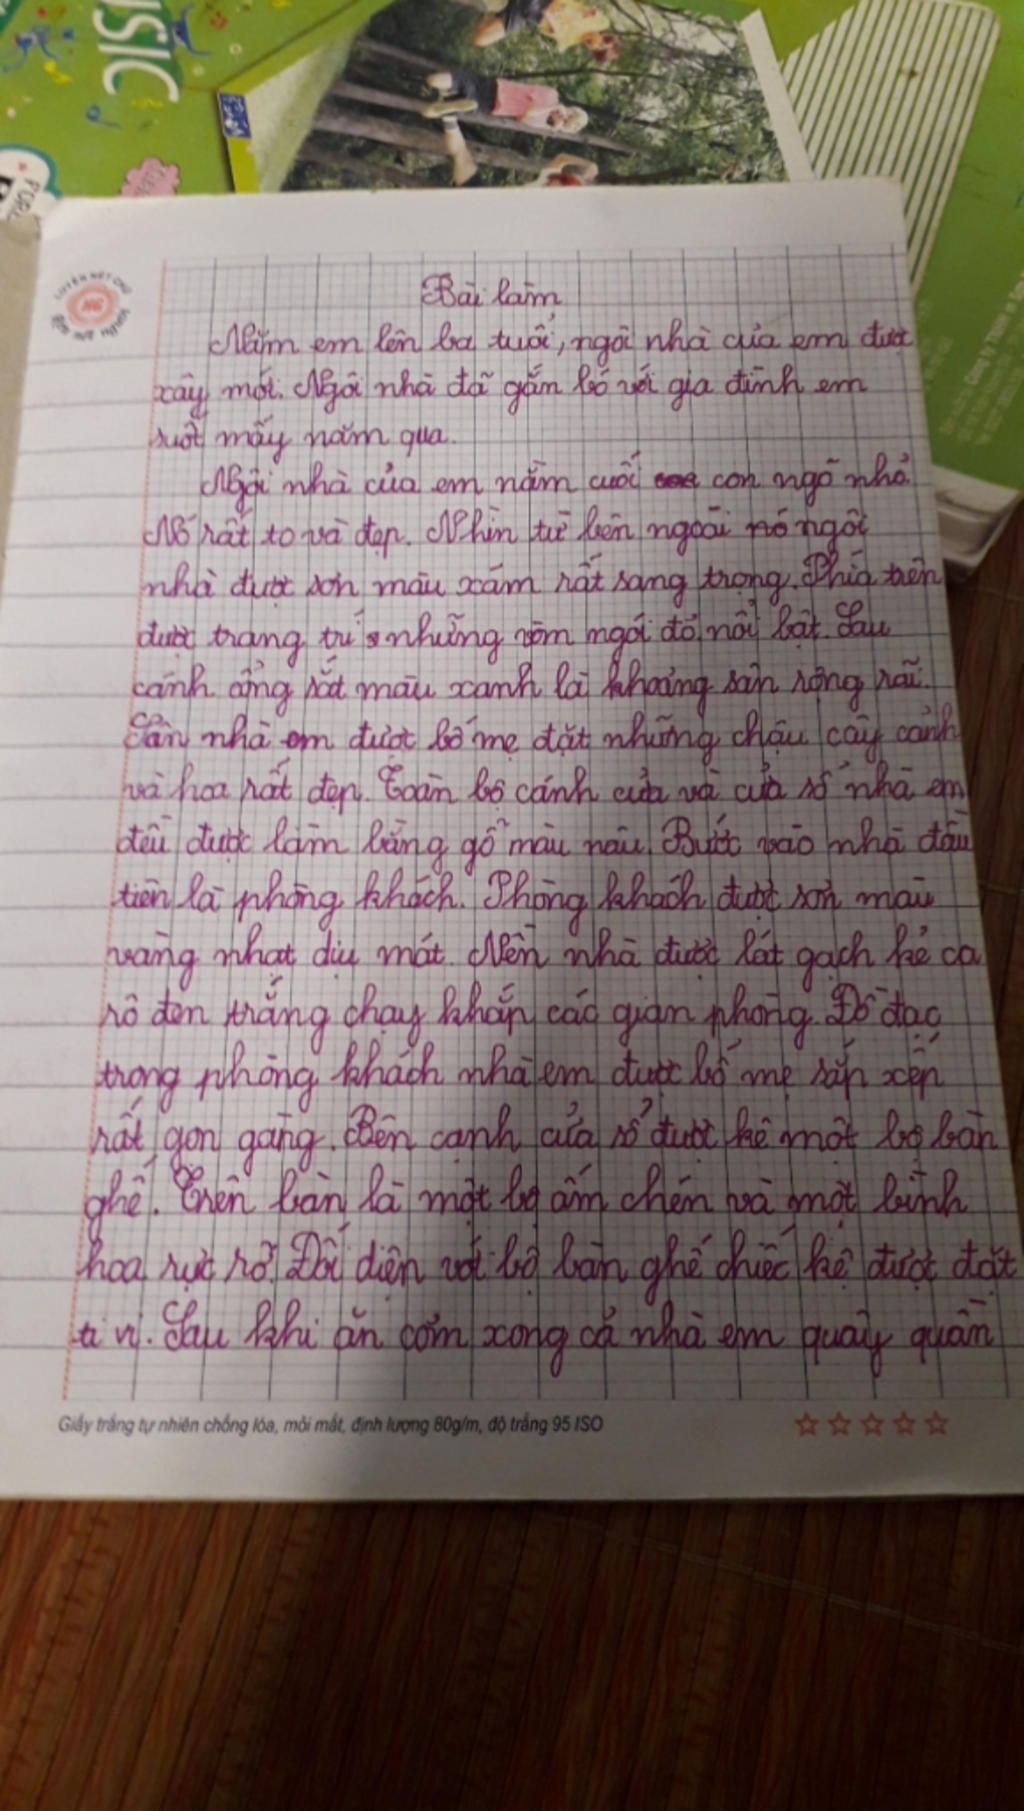 USIC
LUYỆN NÉT CHỮ
RÈN NẾT NGƯỜI
Bài làm
Năm em lên ba tuổi, ngôi nhà của em được
xây mới. Ngôi nhà đã gắn bó với gia đình em
suốt mấy năm qua.
Ngôi nhà của em nằm cuối con ngõ nhỏ.
Nó rất to và đẹp. Nhìn từ bên ngoài nó ngôi
nhà được sơn màu xám rất sang trọng. Phía trên
được trang trí những vòm ngói đỏ nổi bật. Sau
cánh cổng sắt màu xanh là khoảng sân rộng rãi.
Sân nhà em được bố mẹ đặt những chậu cây cảnh
và hoa rất đẹp. Toàn bộ cánh cửa và cửa sổ nhà em
đều được làm bằng gỗ màu nâu. Bước vào nhà đầu
tiên là phòng khách. Phòng khách được sơn màu
vàng nhạt dịu mát. Nền nhà được lát gạch kẻ ca
rô đen trắng chạy khắp các gian phòng. Đồ đạc
trong phòng khách nhà em được bố mẹ sắp xếp
rất gọn gàng. Bên cạnh cửa sổ được kê một bộ bàn
ghế. Trên bàn là một bộ ấm chén và một bình
hoa rực rỡ. Đối diện với bộ bàn ghế chiếc kệ được đặt
ti vi. Sau khi ăn cơm xong cả nhà em quây quần
Giấy trắng tự nhiên chống lóa, mỏi mắt, định lượng 80g/m, độ trắng 95 ISO